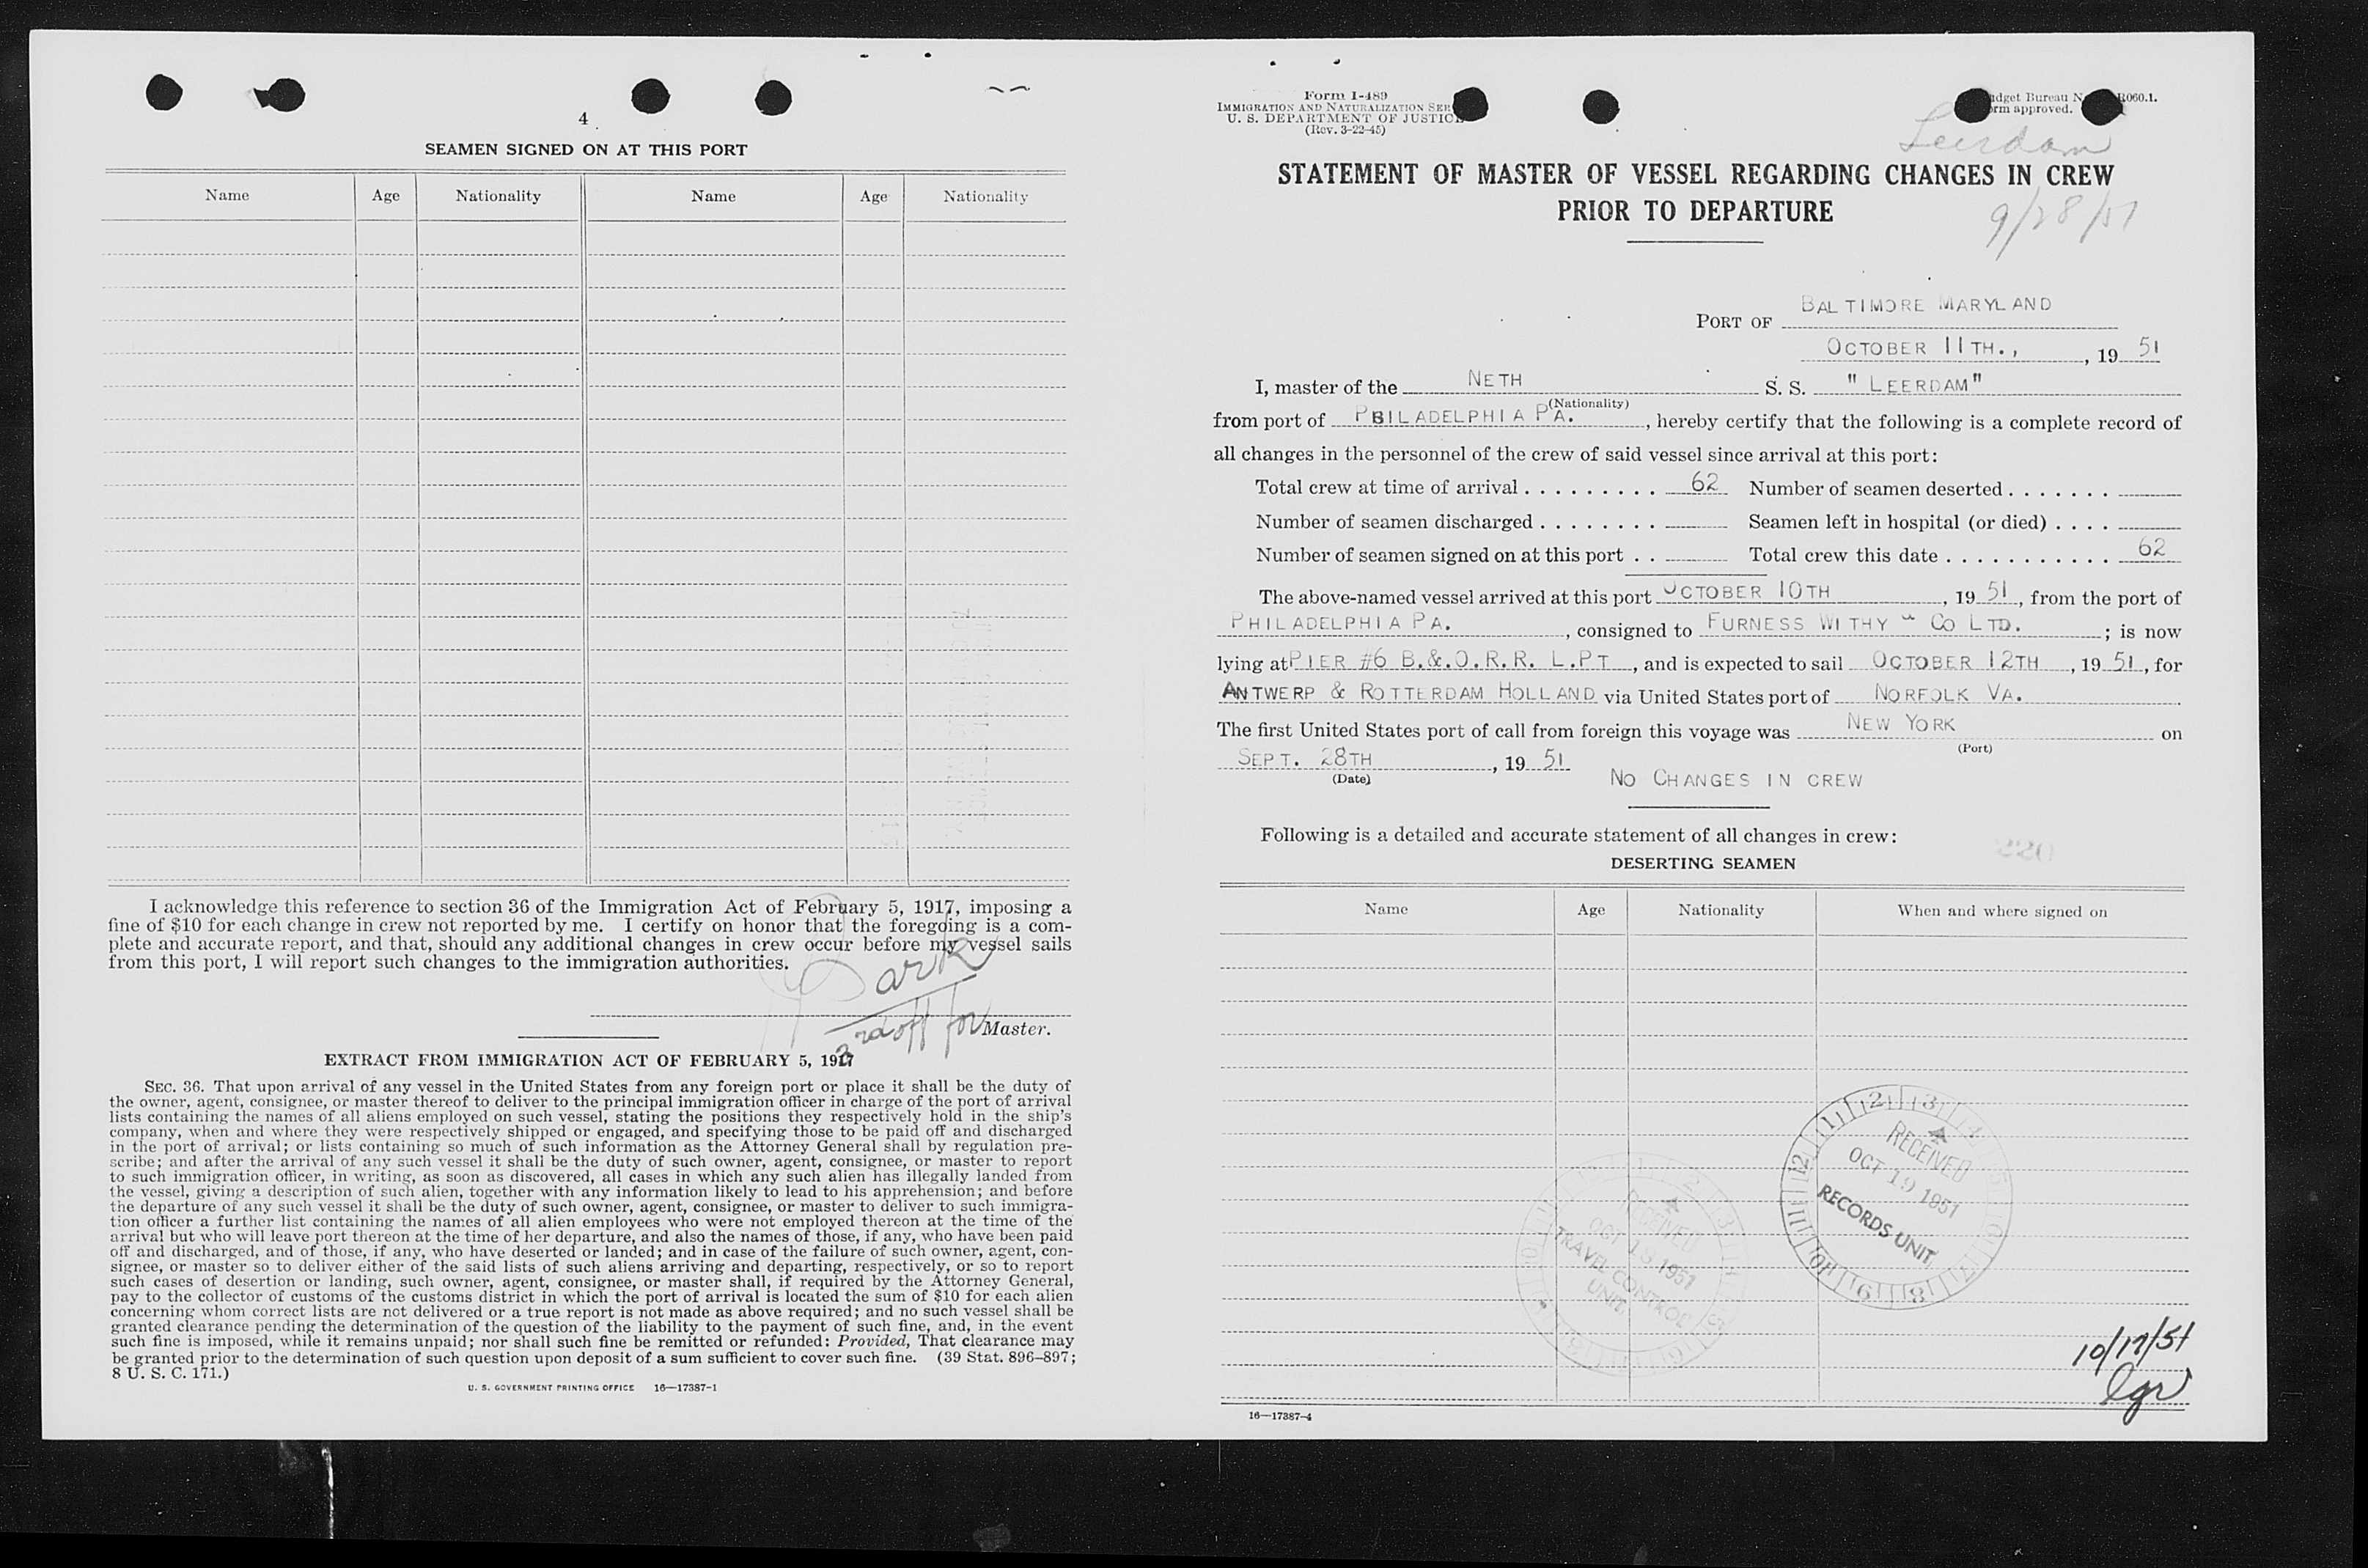 4
SEAMEN SIGNED ON AT THIS PORT
Name Age Nationality Name Age Nationality
I acknowledge this reference to section 36 of the Immigration Act of February 5, 1917, imposing a
fine of $10 for each change in crew not reported by me. I certify on honor that the foregoing is a com-
plete and accurate report, and that, should any additional changes in crew occur before my vessel sails
from this port, I will report such changes to the immigration authorities.
3rd off for Master.
EXTRACT FROM IMMIGRATION ACT OF FEBRUARY 5, 1917
SEC. 36. That upon arrival of any vessel in the United States from any foreign port or place it shall be the duty of
the owner, agent, consignee, or master thereof to deliver to the principal immigration officer in charge of the port of arrival
lists containing the names of all aliens employed on such vessel, stating the positions they respectively hold in the ship's
company, when and where they were respectively shipped or engaged, and specifying those to be paid off and discharged
in the port of arrival; or lists containing so much of such information as the Attorney General shall by regulation pre-
scribe; and after the arrival of any such vessel it shall be the duty of such owner, agent, consignee, or master to report
to such immigration officer, in writing, as soon as discovered, all cases in which any such alien has illegally landed from
the vessel, giving a description of such alien, together with any information likely to lead to his apprehension; and before
the departure of any such vessel it shall be the duty of such owner, agent, consignee, or master to deliver to such immigra-
tion officer a further list containing the names of all alien employees who were not employed thereon at the time of the
arrival but who will leave port thereon at the time of her departure, and also the names of those, if any, who have been paid
off and discharged, and of those, if any, who have deserted or landed; and in case of the failure of such owner, agent, con-
signee, or master so to deliver either of the said lists of such aliens arriving and departing, respectively, or so to report
such cases of desertion or landing, such owner, agent, consignee, or master shall, if required by the Attorney General,
pay to the collector of customs of the customs district in which the port of arrival is located the sum of $10 for each alien
concerning whom correct lists are not delivered or a true report is not made as above required; and no such vessel shall be
granted clearance pending the determination of the question of the liability to the payment of such fine, and, in the event
such fine is imposed, while it remains unpaid; nor shall such fine be remitted or refunded: Provided, That clearance may
be granted prior to the determination of such question upon deposit of a sum sufficient to cover such fine. (39 Stat. 896–897;
8 U. S. C. 171.)
U. S. GOVERNMENT PRINTING OFFICE 16—17387-1
Form I-489
IMMIGRATION AND NATURALIZATION SER
U. S. DEPARTMENT OF JUSTICE
(Rev. 3-22-45)
dget Bureau N R060.1.
rm approved.
Leerdam
STATEMENT OF MASTER OF VESSEL REGARDING CHANGES IN CREW
PRIOR TO DEPARTURE
9/28/51
PORT OF BALTIMORE MARYLAND
OCTOBER 11TH., , 19 51
I, master of the NETH S. S. "LEERDAM"
(Nationality)
from port of PBILADELPHIA PA. , hereby certify that the following is a complete record of
all changes in the personnel of the crew of said vessel since arrival at this port:
Total crew at time of arrival . . . . . . . . . 62 Number of seamen deserted . . . . . . .
Number of seamen discharged . . . . . . . . Seamen left in hospital (or died) . . . .
Number of seamen signed on at this port . . Total crew this date . . . . . . . . . . . 62
The above-named vessel arrived at this port OCTOBER 10TH , 19 51 , from the port of
PHILADELPHIA PA. , consigned to FURNESS WITHY & CO LTD. ; is now
lying at PIER #6 B.&.O.R.R. L.PT , and is expected to sail OCTOBER 12TH , 19 51 , for
ANTWERP & ROTTERDAM HOLLAND via United States port of NORFOLK VA.
The first United States port of call from foreign this voyage was NEW YORK on
(Port)
SEPT. 28TH , 19 51
(Date)
NO CHANGES IN CREW
Following is a detailed and accurate statement of all changes in crew:
220
DESERTING SEAMEN
Name Age Nationality When and where signed on
RECEIVED
OCT 19 1951
RECORDS UNIT
RECEIVED
OCT 18 1951
TRAVEL CONTROL
UNIT
10/17/51
16—17387-4